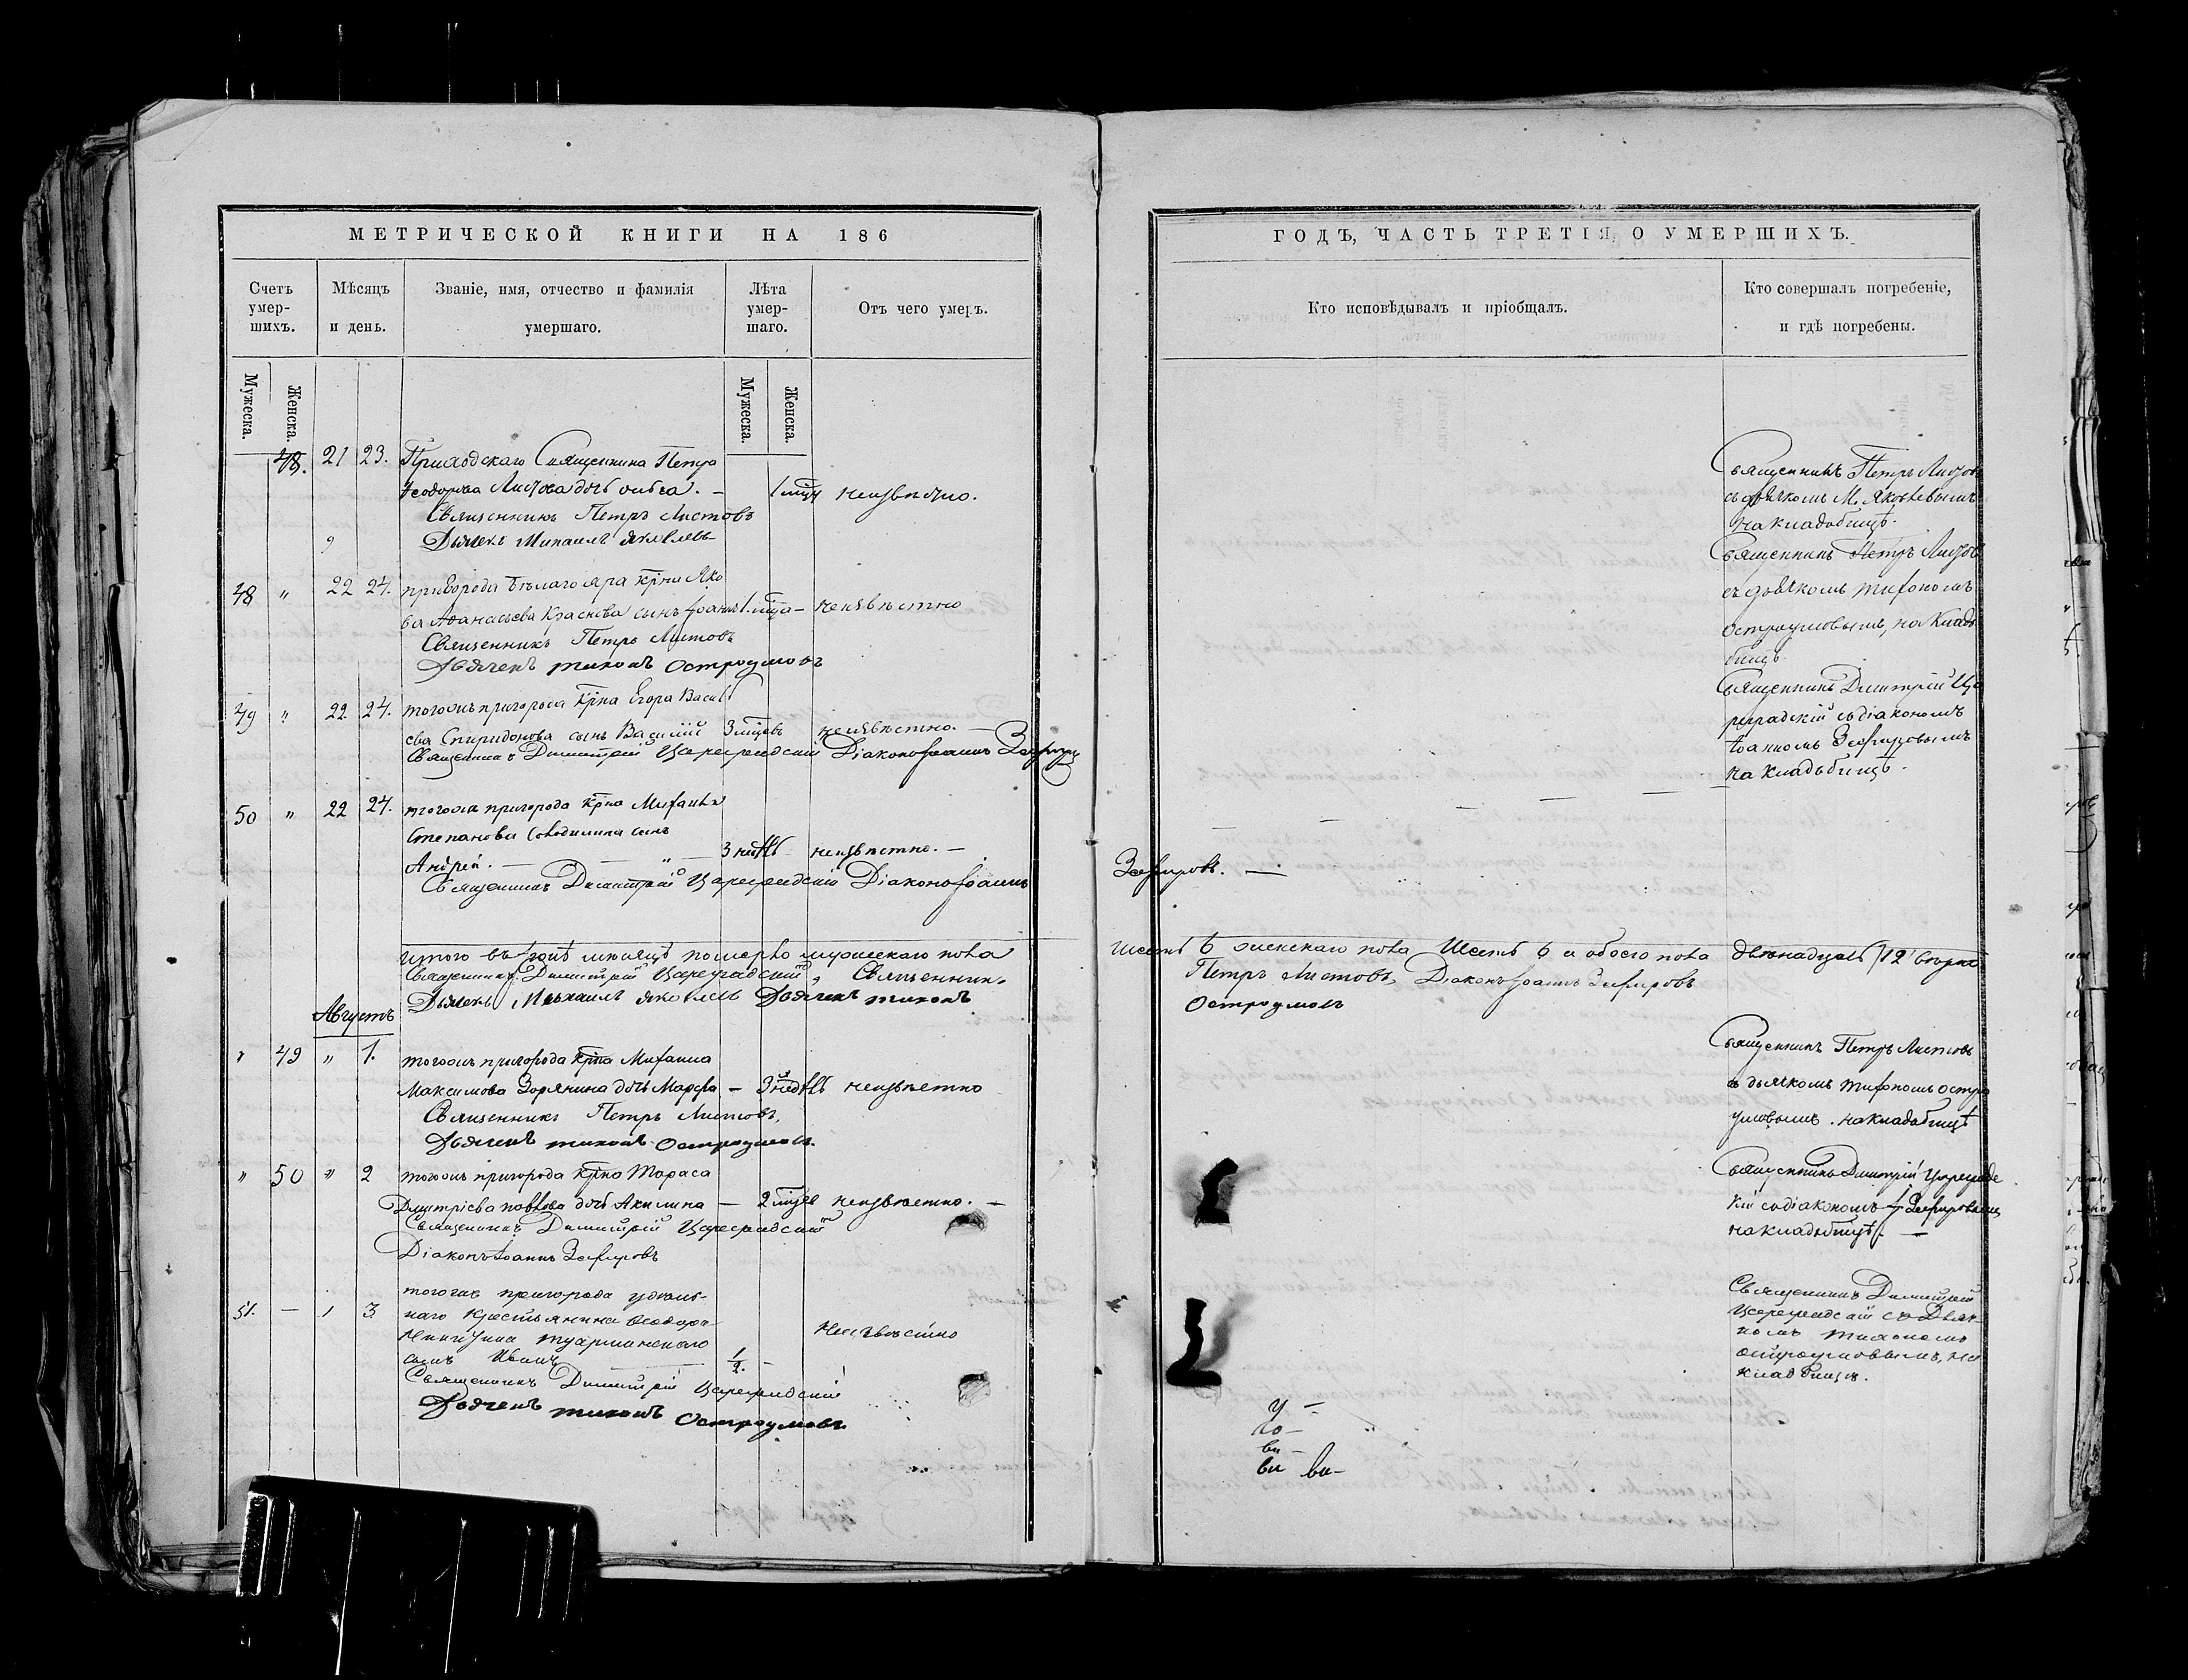 МЕТРИЧЕСКОЙ КНИГИ НА 186
Счетъ умер-шихъ.
Мѣсяцъ и день.
Званіе, имя, отчество и фамилія умершаго.
Лѣта умер-шаго.
Отъ чего умеръ.
Мужеска.
Женска.
Мужеска.
Женска.
48. 21 23. Приходскаго Священника Петра
Ѳеодорова Листова дочь 1 неизвѣстно.
Священникъ Петръ Листовъ
Дьячекъ Михаилъ Яковлевъ
48 " 22 24. пригорода Бѣлаго яра крна Яко
ва Афанасьева Краснова сынъ Іоаннъ 1. мца - неизвѣстно
Священникъ Петръ Листовъ
Дьячекъ Тихонъ Остроумовъ
49 " 22 24. тогожъ пригорода крна Егора Василь
ева Спиридонова сынъ Василій 3 мцевъ неизвѣстно. -
Священникъ Димитрій Цареградскій Діаконъ Іоаннъ Зефировъ
50 " 22 24. тогожъ пригорода крна Михаила
Степанова сынъ
Андрей. - " - 3 недѣль неизвѣстно. -
Священникъ Димитрій Цареградскій Діаконъ Іоаннъ
Итого въ Іюлѣ мѣсяцѣ померло мужескаго пола
Священникъ Димитрій Цареградскій, Священникъ
Дьячекъ Михаилъ Яковлевъ Дьячекъ Тихонъ
Августъ
" 49 " 1. тогожъ пригорода крна Михаила
Максимова Зорянина дочь Марфа - 3 недѣль неизвѣстно
Священникъ Петръ Листовъ,
Дьячекъ Тихонъ Остроумовъ.
" 50 " 2 тогожъ пригорода крна Тараса
Дмитріева дочь Акилина - 2 мцевъ неизвѣстно. -
Священникъ Димитрій Цареградскій
Діаконъ Іоаннъ Зефировъ
51. - " 3 тогоже пригорода удѣль-
наго крестьянина Ѳеодора
сынъ Иванъ 1/2. - Неизвѣстно
Священникъ Димитрій Цареградскій
Дьячекъ Тихонъ Остроумовъ.
ГОДЪ, ЧАСТЬ ТРЕТІЯ, О УМЕРШИХЪ.
Кто исповѣдывалъ и пріобщалъ.
Кто совершалъ погребеніе, и гдѣ погребены.
Священникъ Петръ Листовъ
съ дьячкомъ М. Яковлевымъ
на кладбищѣ.
Священникъ Петръ Листовъ
съ дьячкомъ Тихономъ
Остроумовымъ, на клад
бищѣ.
Священникъ Димитрій Ца
реградскій съ діакономъ
Іоанномъ Зефировымъ
на кладбищѣ.
Зефировъ. -
Шесть 6 женскаго пола Шесть 6 а обоего пола двѣнадцать /12
Петръ Листовъ, Діаконъ Іоаннъ Зефировъ
Остроумовъ
Священникъ Петръ Листовъ
съ дьячкомъ Тихономъ Остро
умовымъ. на кладбищѣ
Священникъ Димитрій Цареградс
кій съ діакономъ І. Зефировымъ
на кладбищѣ. -
Священникъ Димитрій
Цареградскій съ Дьяч-
комъ Тихономъ
Остроумовымъ, на
кладбищѣ.